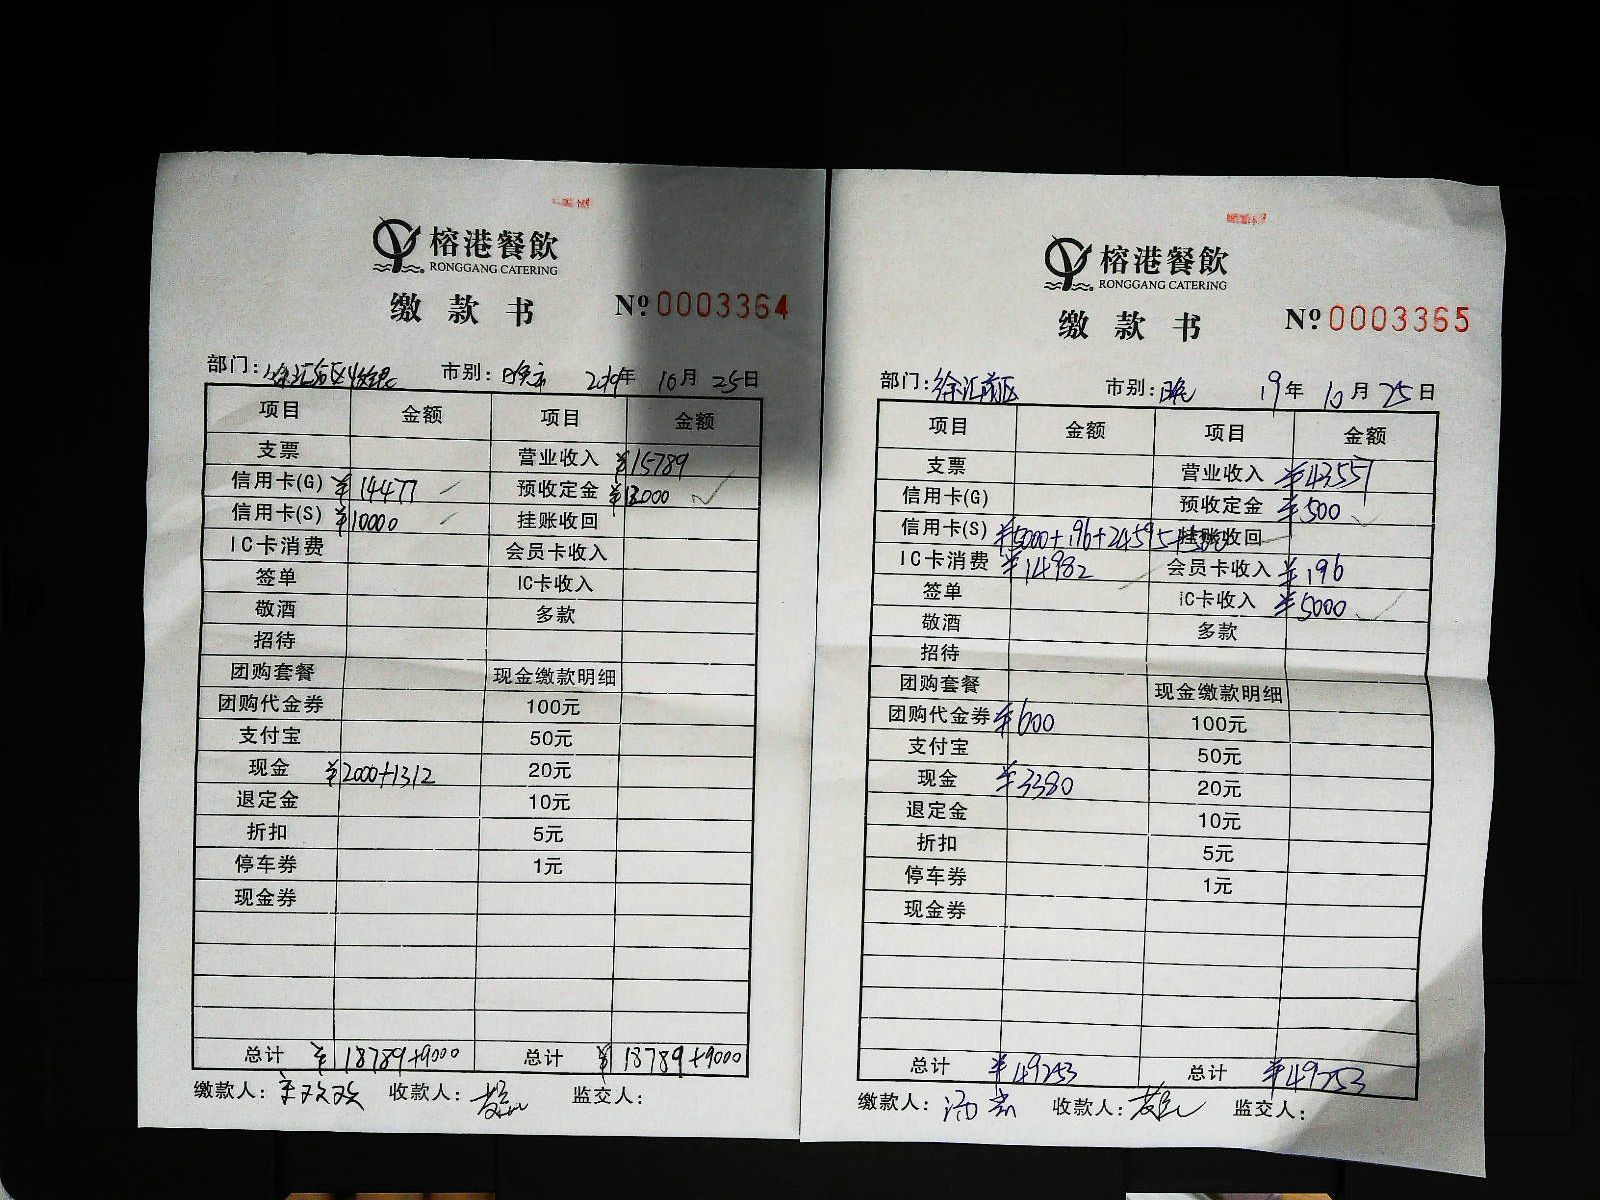 榕港餐飲
RONGGANG CATERING
缴款书 Nº 0003364
部门: 市别: 晚市 2019年 10月 25日
项目 金额 项目 金额
支票 营业收入 ¥15789
信用卡(G) ¥14477 预收定金 ¥12000
信用卡(S) ¥10000 挂账收回
IC卡消费 会员卡收入
签单 IC卡收入
敬酒 多款
招待
团购套餐 现金缴款明细
团购代金券 100元
支付宝 50元
现金 ¥2000+1312 20元
退定金 10元
折扣 5元
停车券 1元
现金券
总计 ¥18789+9000 总计 ¥18789+9000
缴款人: 收款人: 监交人:
榕港餐飲
RONGGANG CATERING
缴款书 Nº 0003365
部门: 徐汇前区 市别: 晚 19年 10月 25日
项目 金额 项目 金额
支票 营业收入 ¥43557
信用卡(G) 预收定金 ¥500
信用卡(S) ¥5000+196+24595+500 挂账收回
IC卡消费 ¥14982 会员卡收入 ¥196
签单 IC卡收入 ¥5000
敬酒 多款
招待
团购套餐 现金缴款明细
团购代金券 ¥600 100元
支付宝 50元
现金 ¥3380 20元
退定金 10元
折扣 5元
停车券 1元
现金券
总计 ¥49253 总计 ¥49253
缴款人: 收款人: 监交人: